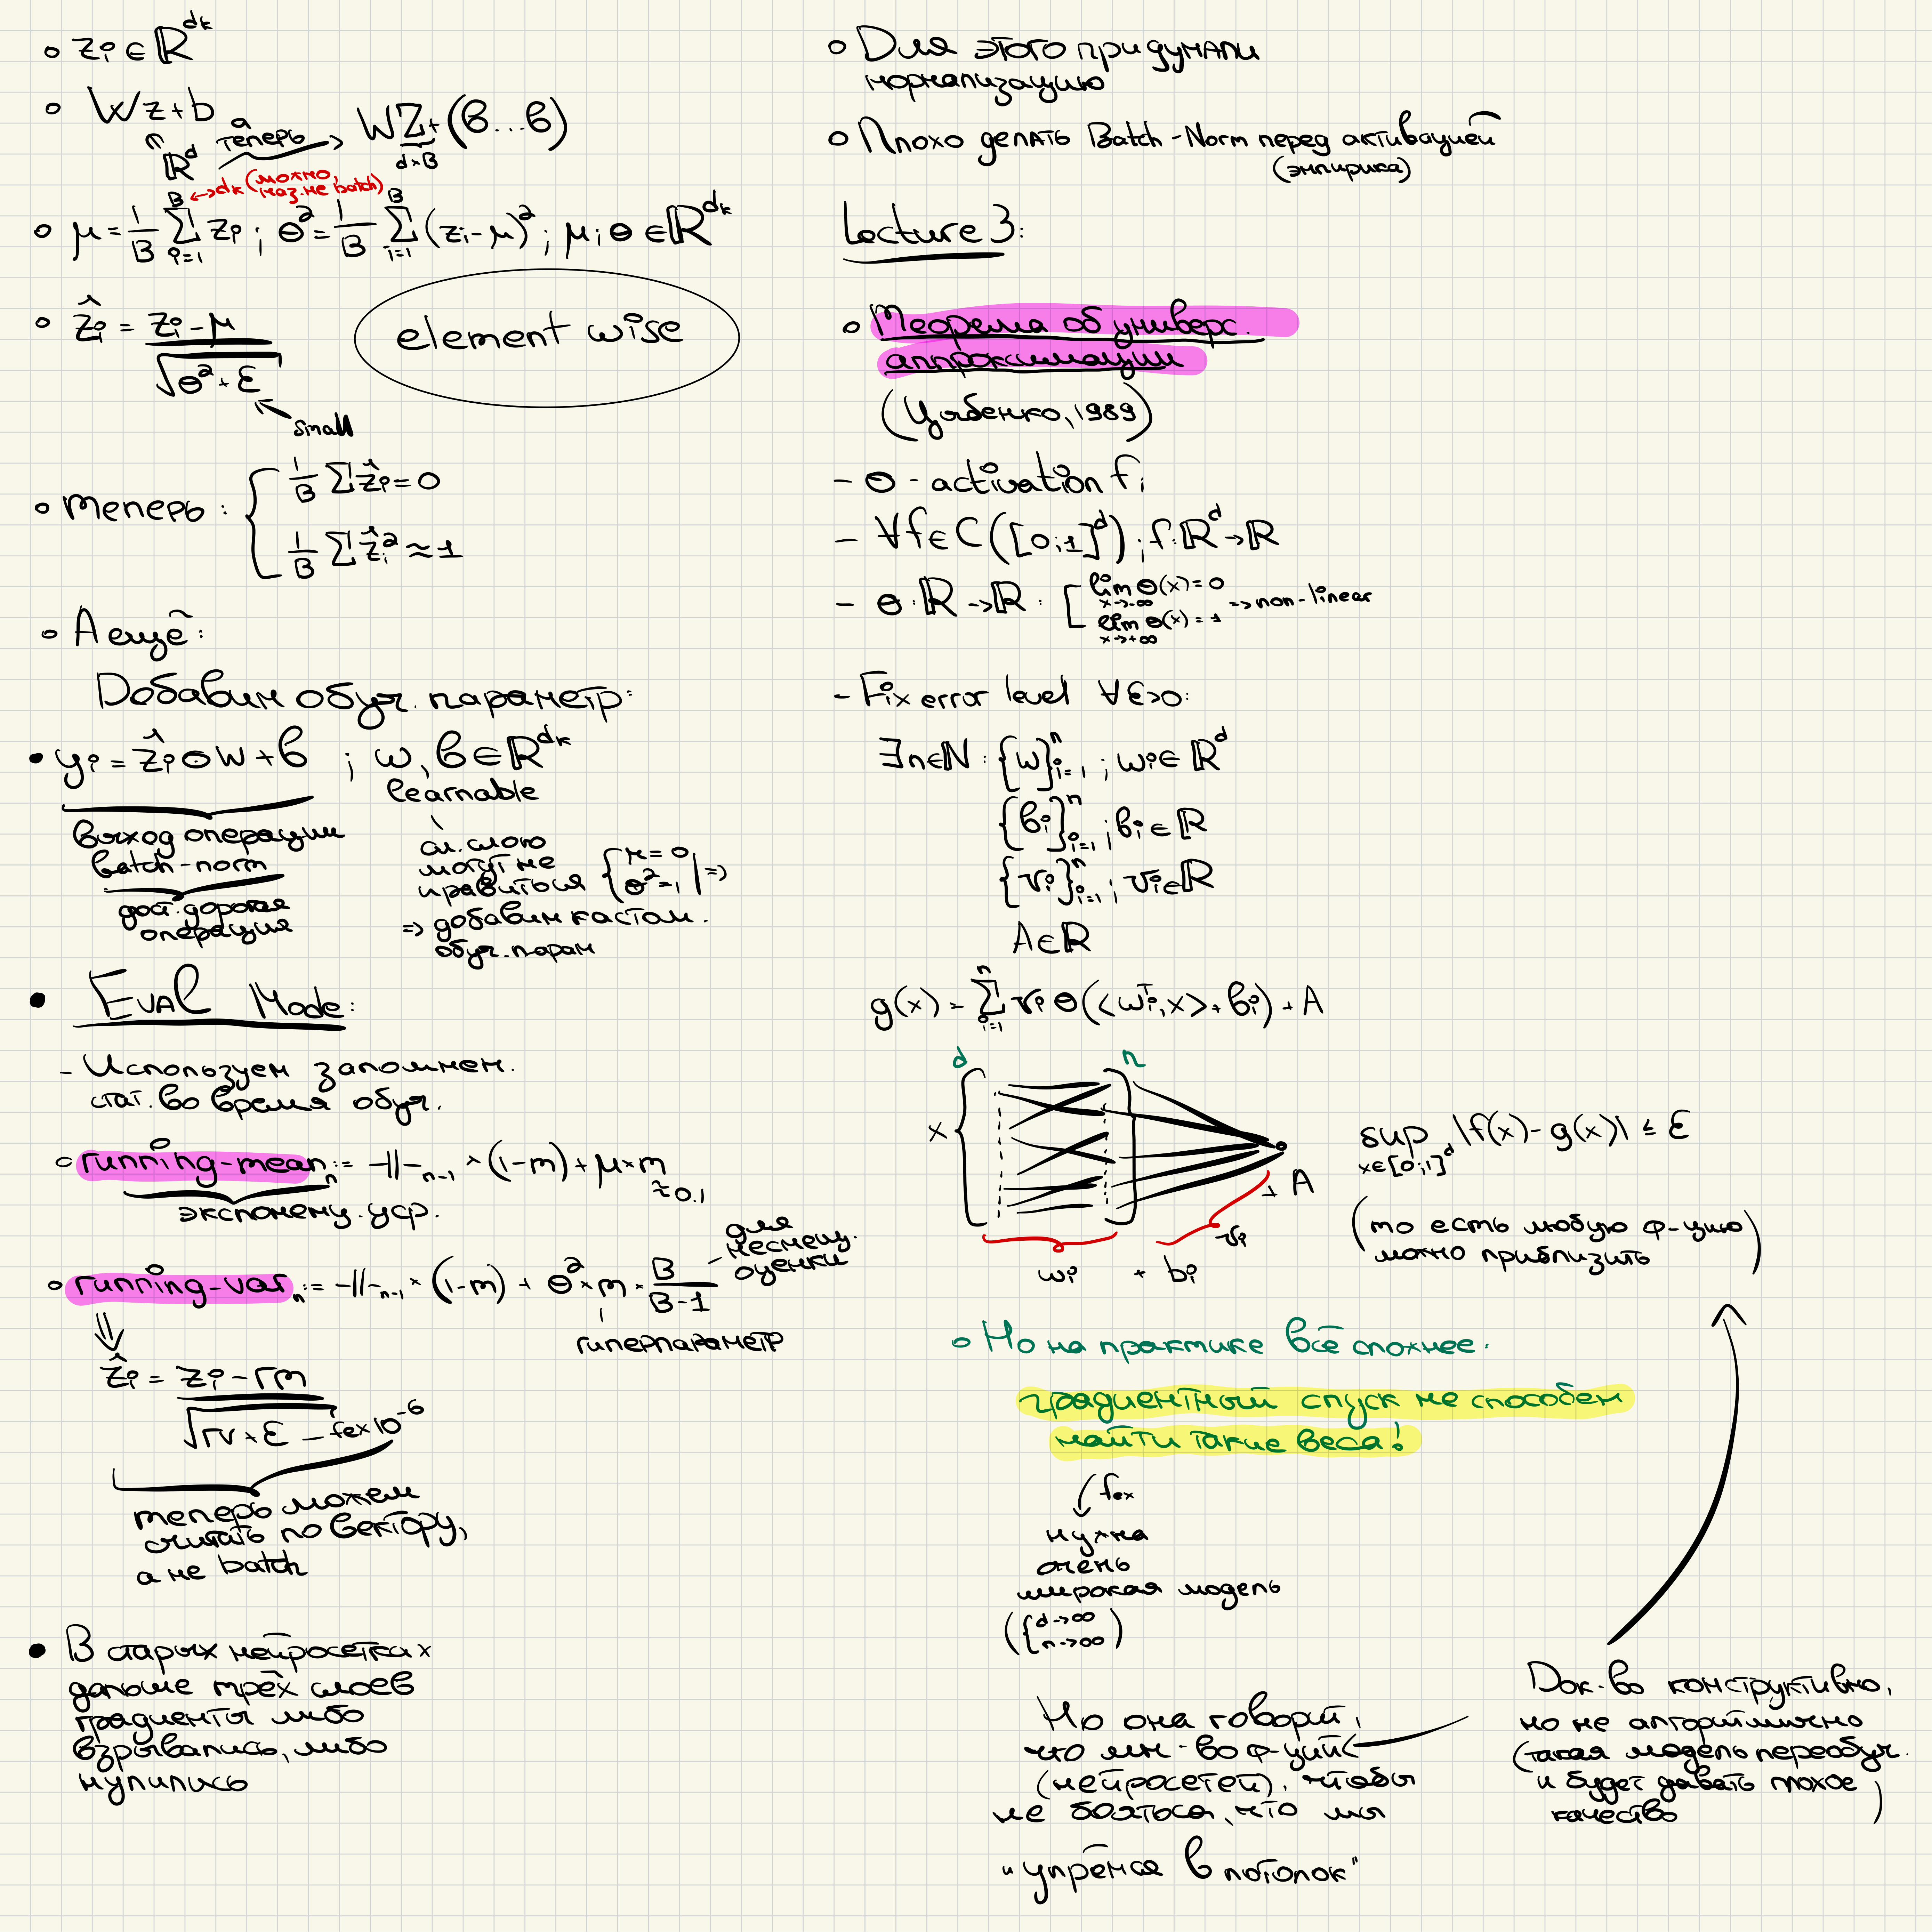 ∘ zᵢ ∈ ℝ^dₖ
∘ Wz+b
ℝ^d
а теперь → WZ + (b...b)
d×B
↔ dₖ (можно, наз. не batch)
∘ μ = 1/B ∑_{i=1}^{B} zᵢ ; θ² = 1/B ∑_{i=1}^{B} (zᵢ-μ)² ; μ; θ ∈ ℝ^dₖ
∘ ẑᵢ = (zᵢ - μ) / √(θ² + ε)
small
element wise
∘ Теперь: { 1/B ∑ ẑᵢ = 0
1/B ∑ ẑᵢ² ≈ 1
∘ А ещё:
Добавим обуч. параметр:
• yᵢ = ẑᵢ ⊙ w + b ; w, b ∈ ℝ^dₖ
learnable
выход операции
batch-norm
дост. дорогая
операция
сл. слою
могут не
нравиться { μ = 0 θ² = 1 | =>
=> добавим кастом.
обуч. парам
• Eval Mode:
- Используем запомнен.
стат. во время обуч.
∘ running-meanₙ := -||-ₙ₋₁ × (1-m) + μ × m
≈ 0.1
экспоненц. уср.
∘ running-varₙ := -||-ₙ₋₁ × (1-m) + θ² × m × B/(B-1)
- для
несмещ.
оценки
гиперпараметр
⇓
ẑᵢ = (zᵢ - rm) / √(rv + ε) - fex 10⁻⁶
теперь можем
считать по вектору,
а не batch
• В старых нейросетках
дальше трёх слоев
градиенты либо
взрывались, либо
нулились
∘ Для этого придумали
нормализацию
∘ Плохо делать Batch-Norm перед активацией
(эмпирика)
Lecture 3:
∘ Теорема об универс.
аппроксимации
(Цибенко, 1989)
- θ - activation f;
- ∀f ∈ C([0;1]^d) ; f: ℝ^d → ℝ
- θ: ℝ → ℝ : [ lim_{x→-∞} θ(x) = 0
lim_{x→+∞} θ(x) = 1
=> non-linear
- Fix error level ∀ε>0:
∃n∈ℕ : {w}ⁿᵢ₌₁ ; wᵢ ∈ ℝ^d
{bᵢ}ⁿᵢ₌₁ ; bᵢ ∈ ℝ
{vᵢ}ⁿᵢ₌₁ ; vᵢ ∈ ℝ
A ∈ ℝ
g(x) = ∑_{i=1}^{n} vᵢ θ(<wᵢᵀ, x> + bᵢ) + A
d
n
x
+ A
vᵢ
wᵢ + bᵢ
sup_{x∈[0;1]^d} |f(x) - g(x)| ≤ ε
(то есть любую ф-цию
можно приблизить)
∘ Но на практике всё сложнее.
градиентный спуск не способен
найти такие веса!
fex
нужна
очень
широкая модель
({ d→∞
n→∞ )
Но она говорит,
что мн-во ф-ций
(нейросетей), чтобы
не бояться, что мы
"упрёмся в потолок"
Док-во конструктивно,
но не алгоритмично
(такая модель переобуч.
и будет давать плохое
качество)